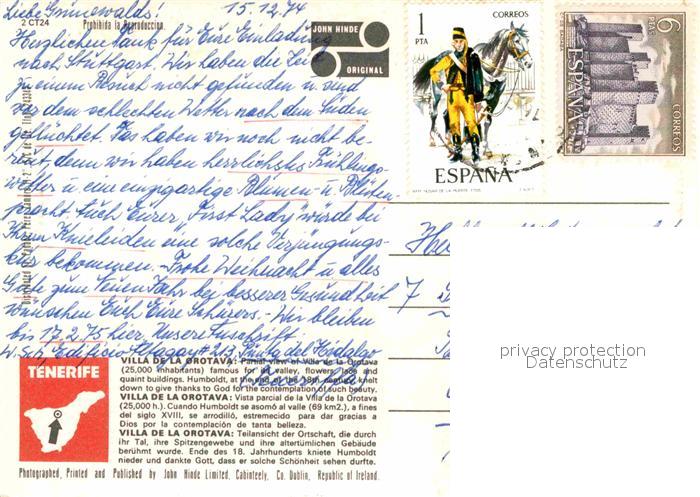 Liebe Grünewalds! 15.12.74
2 CT24 Prohibida la Reproduccion
Herzlichen Dank für Eure Einladung
nach Stuttgart. Wir haben die Zeit
zu einem Besuch nicht gefunden u. sind
vor dem schlechten Wetter nach dem Süden
geflüchtet. Das haben wir noch nicht be-
reut denn wir haben herrlichstes Frühlings-
wetter u. eine einzigartige Blumen- u. Blüten-
pracht. Auch Eurer "First Lady" würde bei
Ihrem Knieleiden eine solche Verjüngungs-
kur bekommen. Frohe Weihnacht u. alles
Gute zum Neuen Jahr bei besserer Gesundheit
wünschen Euch Eure Schürers. Wir bleiben
bis 17.2.75 hier. Unsere Anschrift:
Edificio # 213 Punta del Hidalgo
JOHN HINDE
ORIGINAL
1
PTA
CORREOS
ESPAÑA
6
PTAS
ESPAÑA
CORREOS
privacy protection
Datenschutz
TENERIFE
VILLA DE LA OROTAVA: Partial view of Villa de la Orotava
(25,000 inhabitants) famous for its valley, flowers, lace and
quaint buildings. Humboldt, at the end of the 18th century, knelt
down to give thanks to God for the contemplation of such beauty.
VILLA DE LA OROTAVA: Vista parcial de la Villa de la Orotava
(25,000 h.). Cuando Humboldt se asomó al valle (69 km2.), a fines
del siglo XVIII, se arrodilló, estremecido para dar gracias a
Dios por la contemplación de tanta belleza.
VILLA DE LA OROTAVA: Teilansicht der Ortschaft, die durch
ihr Tal, ihre Spitzengewebe und ihre altertümlichen Gebäude
berühmt wurde. Ende des 18. Jahrhunderts kniete Humboldt
nieder und dankte Gott, dass er solche Schönheit sehen durfte.
Photographed, Printed and Published by John Hinde Limited, Cabinteely, Co. Dublin, Republic of Ireland.